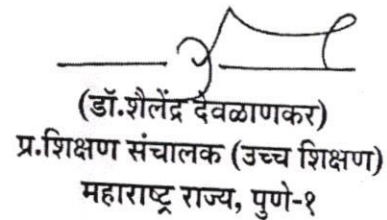 (डॉ.शैलेंद्र देवळाणकर)
प्र.शिक्षण संचालक (उच्च शिक्षण)
महाराष्ट्र राज्य, पुणे-१